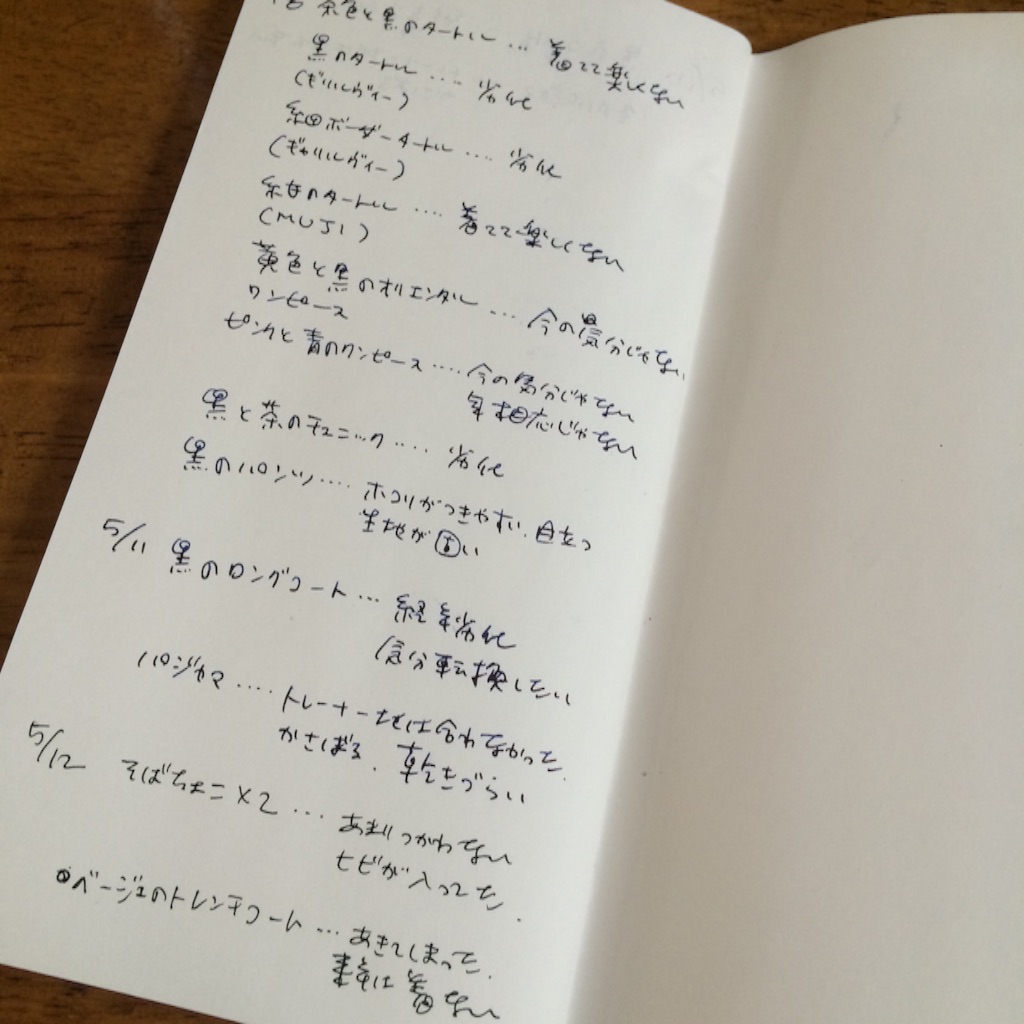 茶色と黒のタートル … 着てて楽しくない
黒のタートル …. 劣化
(ギャルリヴィー)
細ボーダータートル …. 劣化
(ギャルリヴィー)
紺のタートル …. 着てて楽しくない
(MUJI)
黄色と黒のオリエンタル … 今の気分じゃない
ワンピース
ピンクと青のワンピース …. 今の気分じゃない
年相応じゃない
黒と茶のチュニック …. 劣化
黒のパンツ …. ホコリがつきやすい、目立つ
生地が固い
5/11 黒のロングコート … 経年劣化
気分転換したい
パジャマ …. トレーナー生地は合わなかった.
かさばる. 乾きづらい
5/12 そばちょこ×2 … あまりつかわない
ヒビが入ってた.
ベージュのトレンチコート … あきてしまった.
来年は着ない